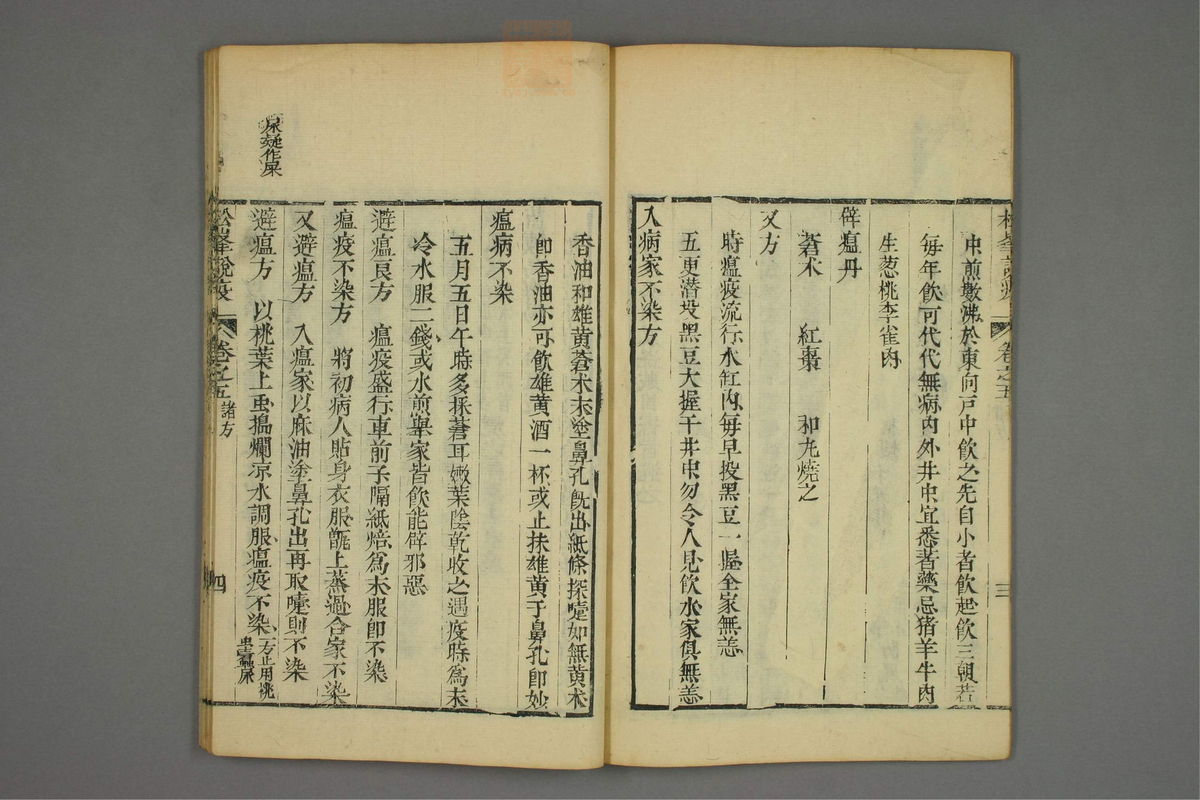 松峯說疫
卷之五
三
中煎數沸於東向戶中飲之先自小者飲起飲三朝若
每年飲可代代無病內外井中宜悉著藥忌猪羊牛肉
生葱桃李雀肉
辟瘟丹
蒼朮 紅棗 和丸燒之
又方
時瘟疫流行水缸內每早投黑豆一握全家無恙
五更潛投黑豆大握于井中勿令人見飲水家俱無恙
入病家不染方
香油和雄黃蒼朮末塗鼻孔旣出紙條探嚏如無黃朮
卽香油亦可飲雄黃酒一杯或止抹雄黃于鼻孔卽妙
瘟病不染
五月五日午時多採蒼耳嫩葉陰乾收之遇疫時為末
冷水服二錢或水煎舉家皆飲能辟邪惡
避瘟良方 瘟疫盛行車前子隔紙焙為末服卽不染
瘟疫不染方 將初病人貼身衣服甑上蒸過合家不染
又避瘟方 入瘟家以麻油塗鼻孔出再取嚏則不染
避瘟方 以桃葉上虫搗爛凉水調服瘟疫不染一方止用桃虫
尿疑作屎
松峯說疫
卷之五
諸方
四